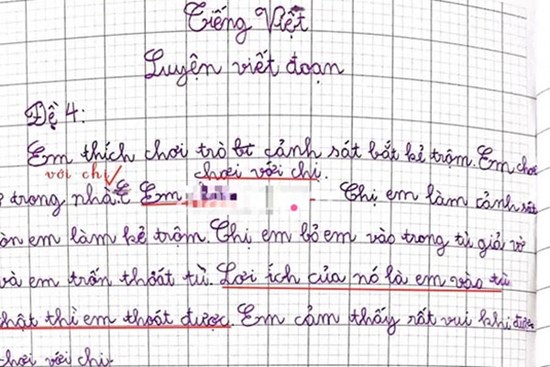 Tiếng Việt
Luyện viết đoạn
Đề 4:
Em thích chơi trò cảnh sát bắt kẻ trộm. Em chơi
với chị chơi với chị.
ở trong nhà. Em Chị em làm cảnh sát
còn em làm kẻ trộm. Chị em bỏ em vào trong tù giả vờ
và em trốn thoát tù. Lợi ích của nó là em vào tù
thật thì em thoát được. Em cảm thấy rất vui khi được
chơi với chị.